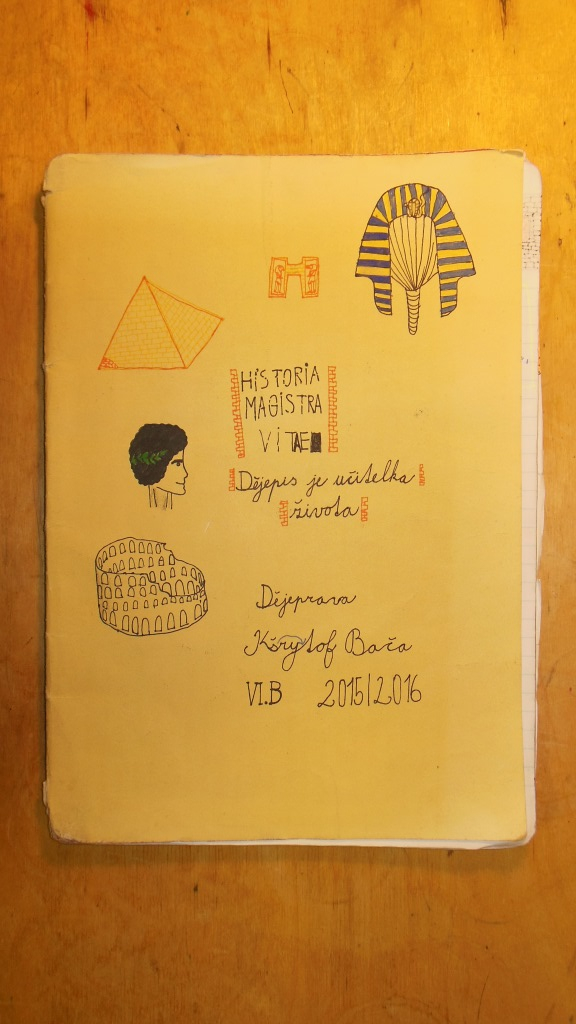 HISTORIA
MAGISTRA
VITAE
Dějepis je učitelka
života
Dějeprava
Kšrytof Bača
VI.B 2015/2016